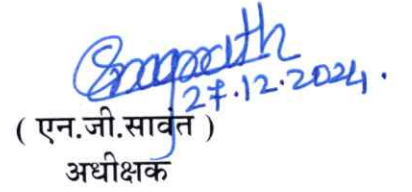 27.12.2024.
( एन.जी.सावंत )
अधीक्षक